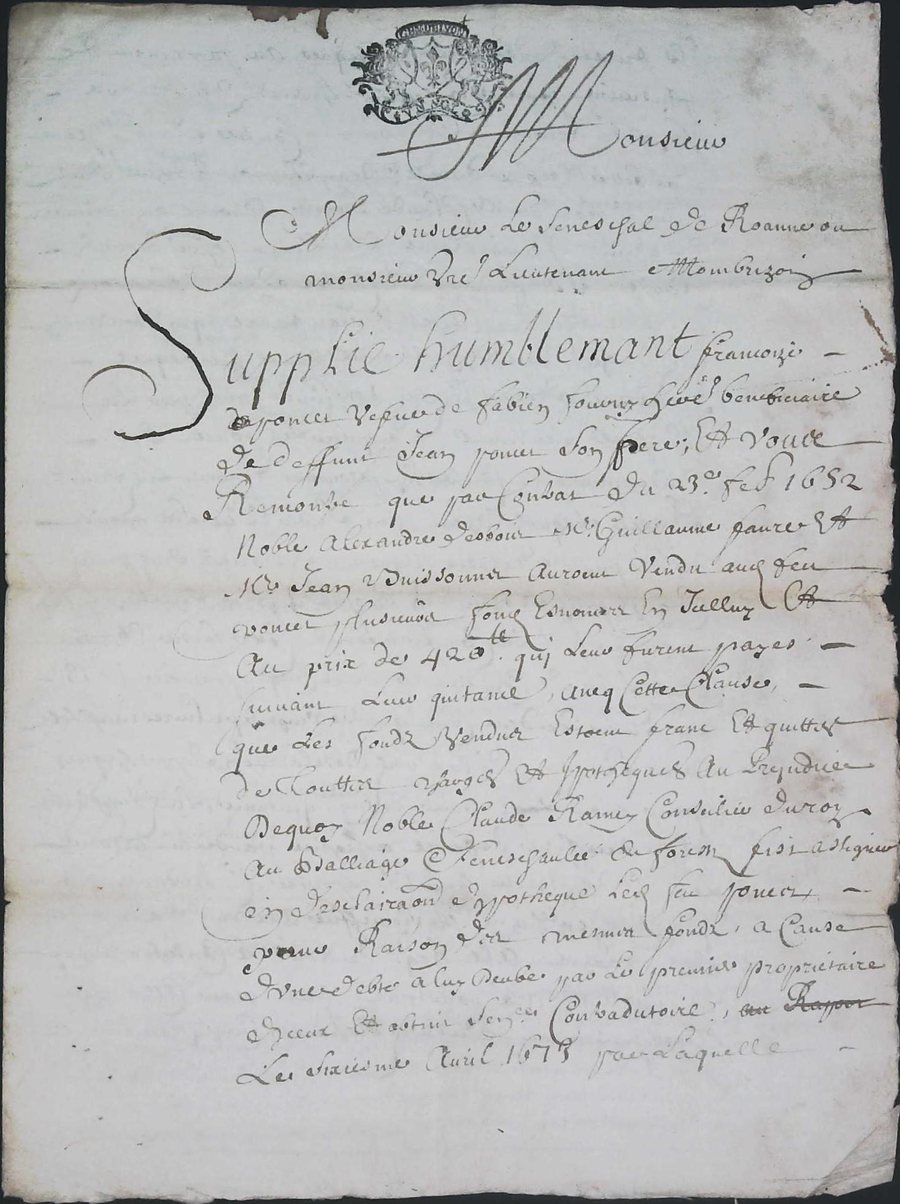 GEN DE LYON
UN SOL
Monsieur
Monsieur Le Seneschal de Roanne ou
monsieur vre Lieutenant a Mombrizon
Supplie humblemant francoize
poncet vefue de fabien here beneficiaire
de deffunt Jean poncet son frere, Et vous
Remontre que par Contrat du 23e feb 1652
Noble Alexandre Me Guillaume faure Et
Me Jean Buissonnet auroent vendu aud feu
poncet plusieurs fonds Esnoncez En Icelluy Et
Au prix de 420tt qui Leur furent payes
suivant Leur quitance, aueq Cette Clause,
que Les fondz vendus Estoent franc Et quittes
de Touttes charges Et ypotheques Au prejudice
Dequoy Noble Claude Ramey Conseilier du roy
Au Balliage & seneschaulcee de forestz fist assigner
en desclairaon dypotheque Led feu poncet
pour Raison des mesmes fondz, a Cause
dune debte a luy deube par Le premier proprietaire
diceux Et obtint senee Contradictoire, au Rapport
Le sixiesme Avril 1675 par Laquelle